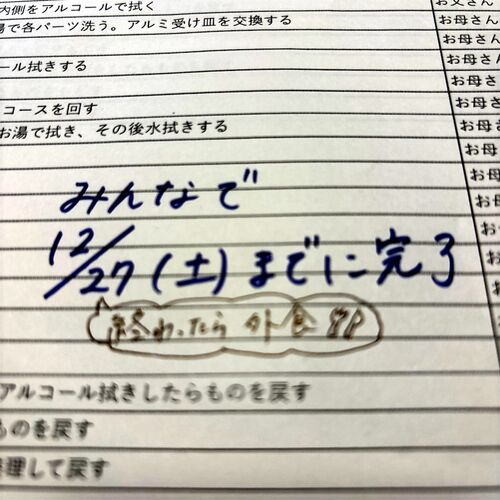 内側をアルコールで拭く お父さん
湯で各パーツ洗う。アルミ受け皿を交換する お母さん
お母さん
ール拭きする お母さん
お母さん
コースを回す お母さん
お湯で拭き、その後水拭きする お母さん
お母
みんなで お母
12/27(土)までに完了
終わったら外食
アルコール拭きしたらものを戻す
ものを戻す
整理して戻す